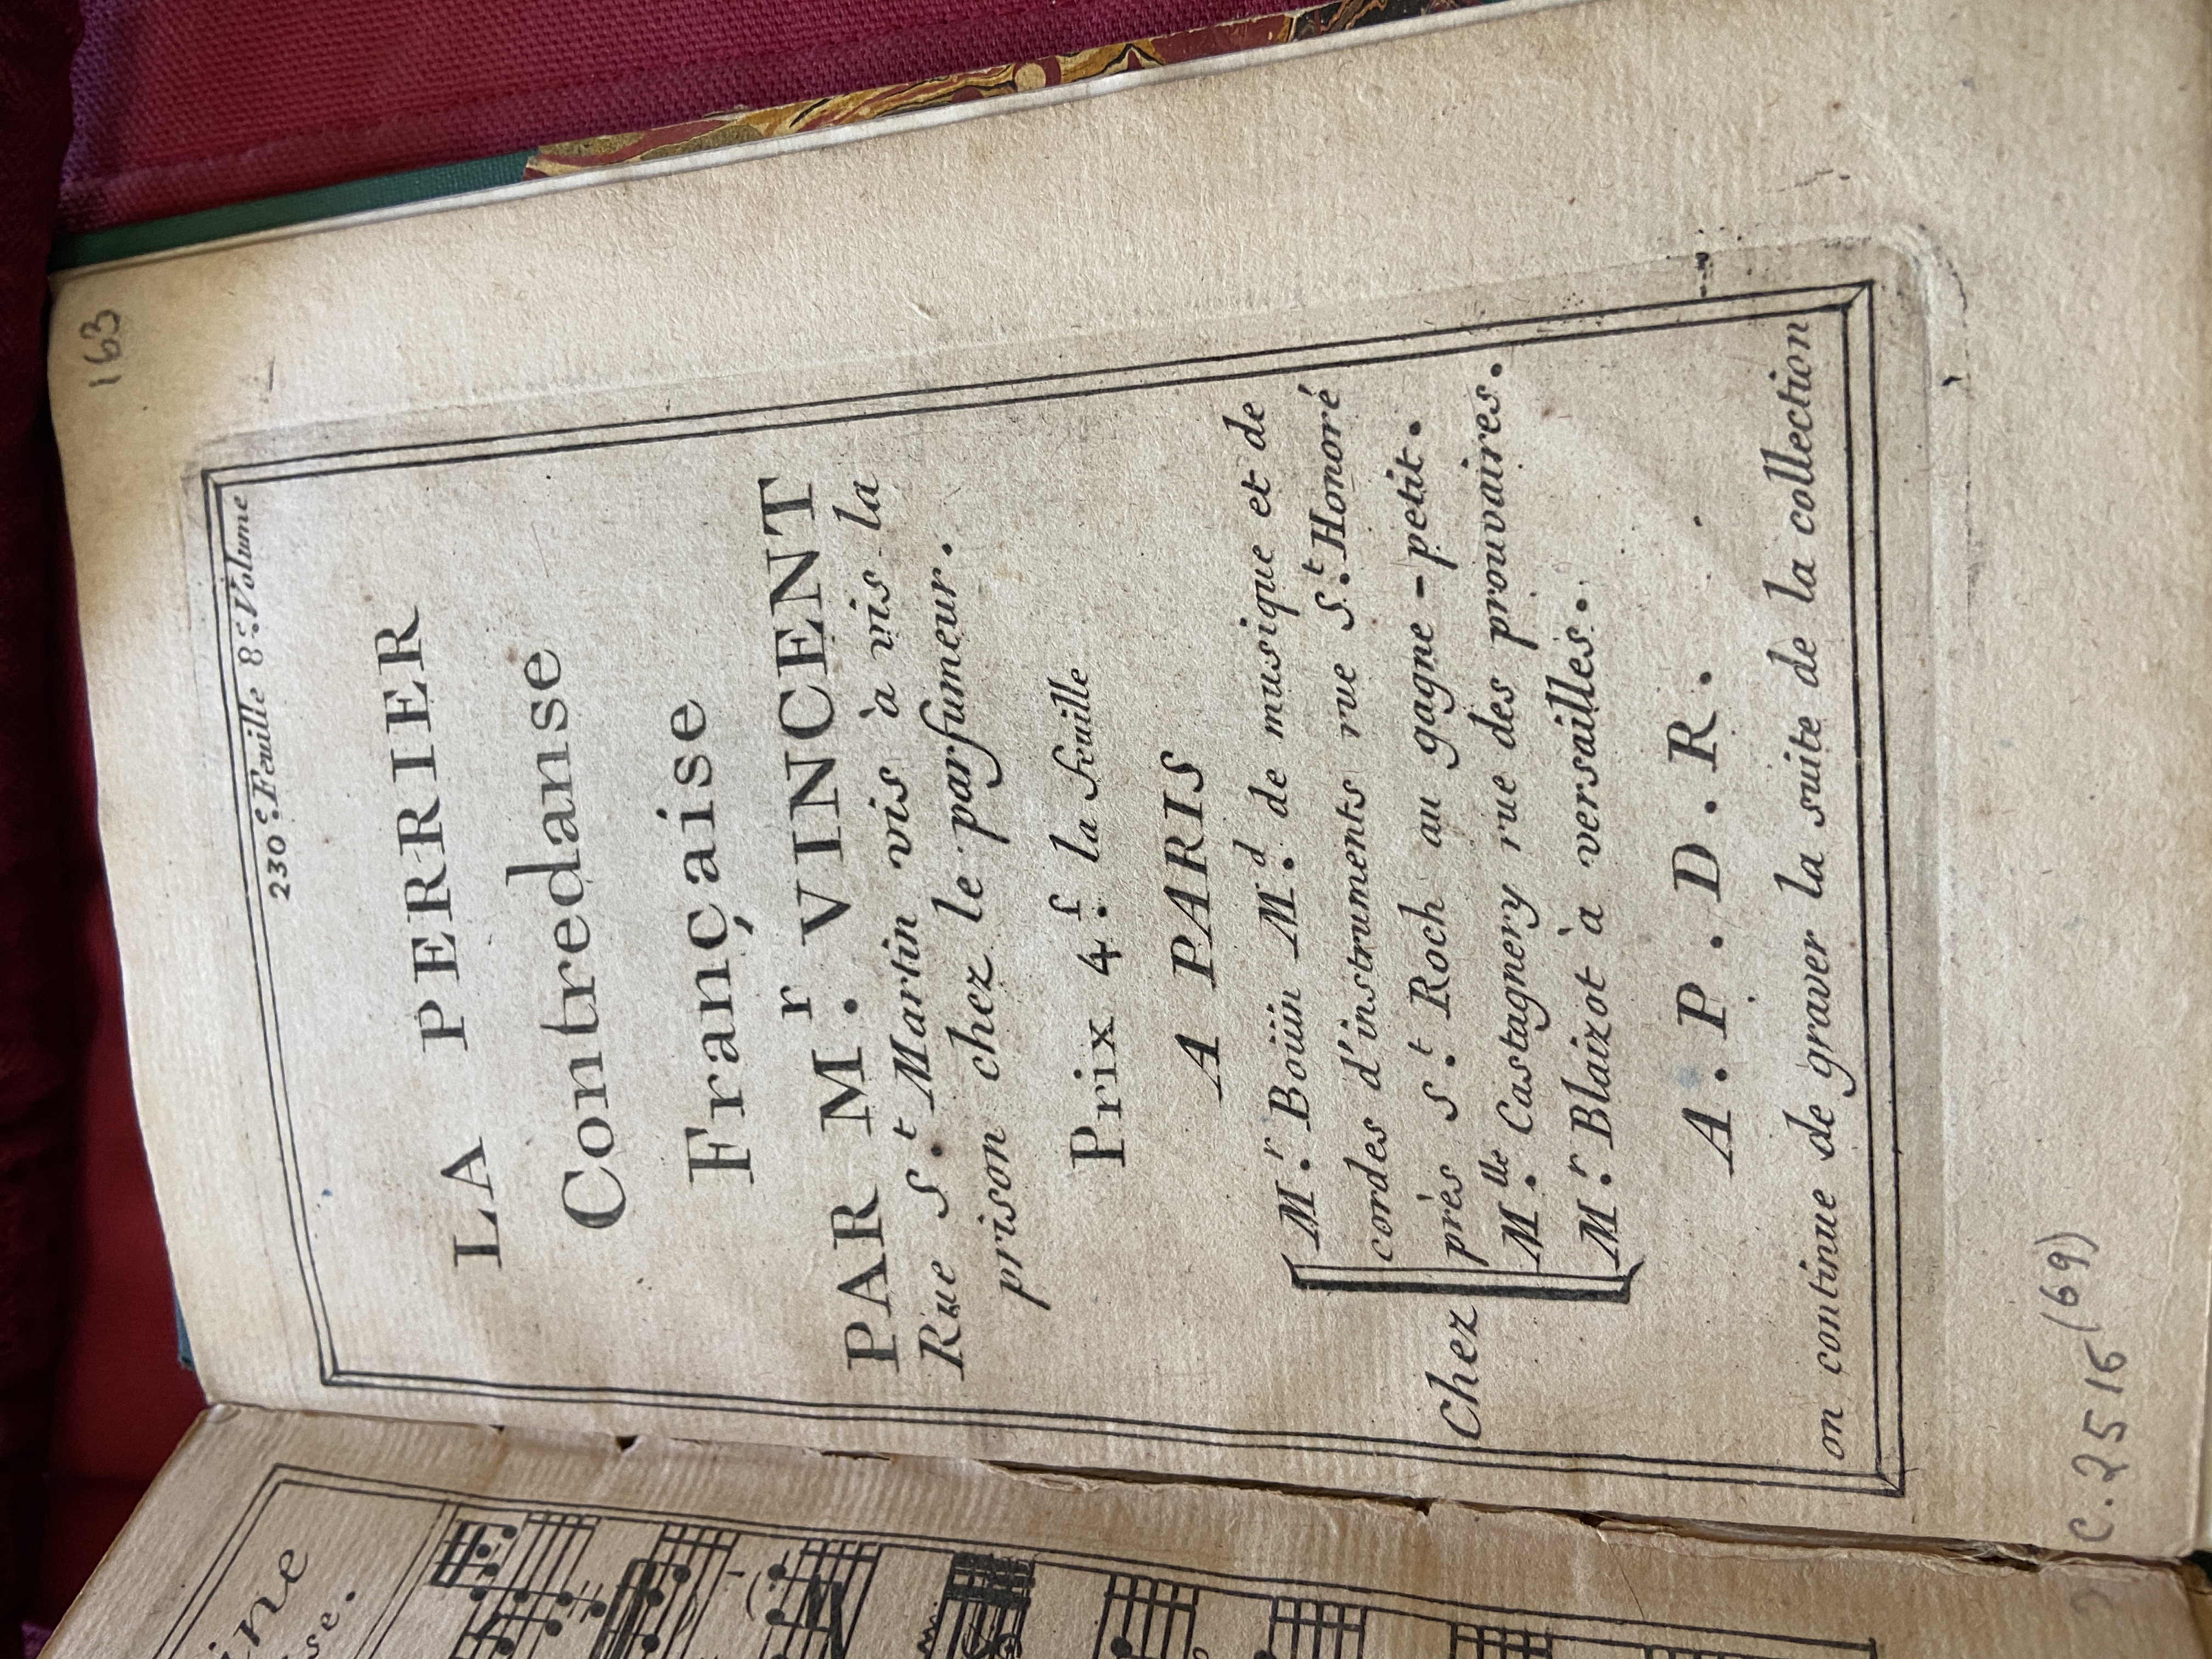 163
230.e Feuille 8.e Volume
LA PERRIER
Contredanse
Française
PAR M.r VINCENT
Rue S.t Martin vis à vis la
prison chez le parfumeur.
Prix 4.f la feuille
A PARIS
Chez
M.r Boüin M.d de musique et de
cordes d'instruments rue S.t Honoré
près S.t Roch au gagne-petit.
M.lle Castagnery rue des prouvaires.
M.r Blaizot à versailles.
A. P. D. R.
on continue de graver la suite de la collection
C. 2516 (69)
ine
se.